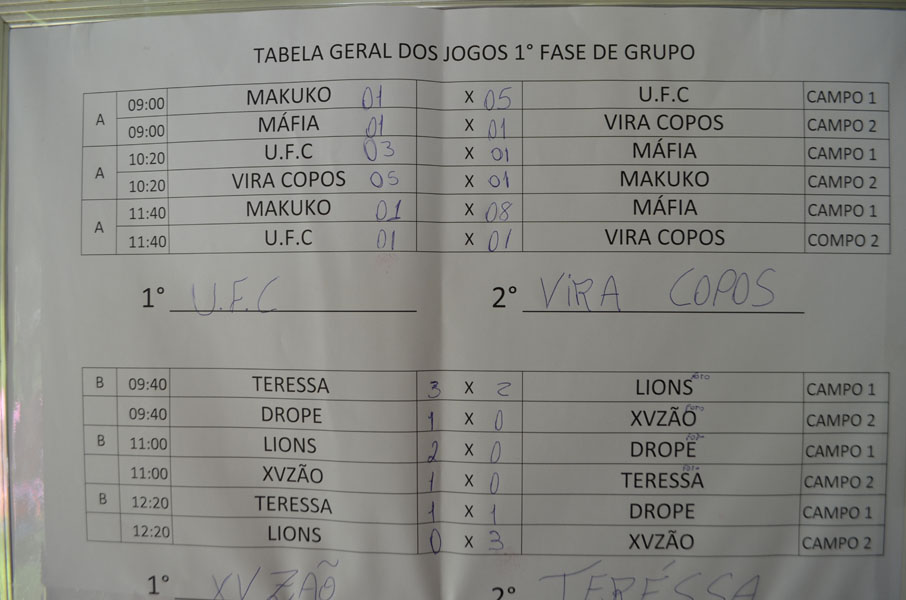 TABELA GERAL DOS JOGOS 1° FASE DE GRUPO
A 09:00 MAKUKO 01 X 05 U.F.C CAMPO 1
09:00 MÁFIA 01 X 01 VIRA COPOS CAMPO 2
A 10:20 U.F.C 03 X 01 MÁFIA CAMPO 1
10:20 VIRA COPOS 05 X 01 MAKUKO CAMPO 2
A 11:40 MAKUKO 01 X 08 MÁFIA CAMPO 1
11:40 U.F.C 01 X 01 VIRA COPOS COMPO 2
1° U.F.C 2° VIRA COPOS
B 09:40 TERESSA 3 X 2 LIONS FOTO CAMPO 1
09:40 DROPE 1 X 0 XVZÃO FOTO CAMPO 2
B 11:00 LIONS 2 X 0 DROPE CAMPO 1
11:00 XVZÃO 1 X 0 TERESSA FOTO CAMPO 2
B 12:20 TERESSA 1 X 1 DROPE CAMPO 1
12:20 LIONS 0 X 3 XVZÃO CAMPO 2
1° XVZÃO 2° TERÉSSA